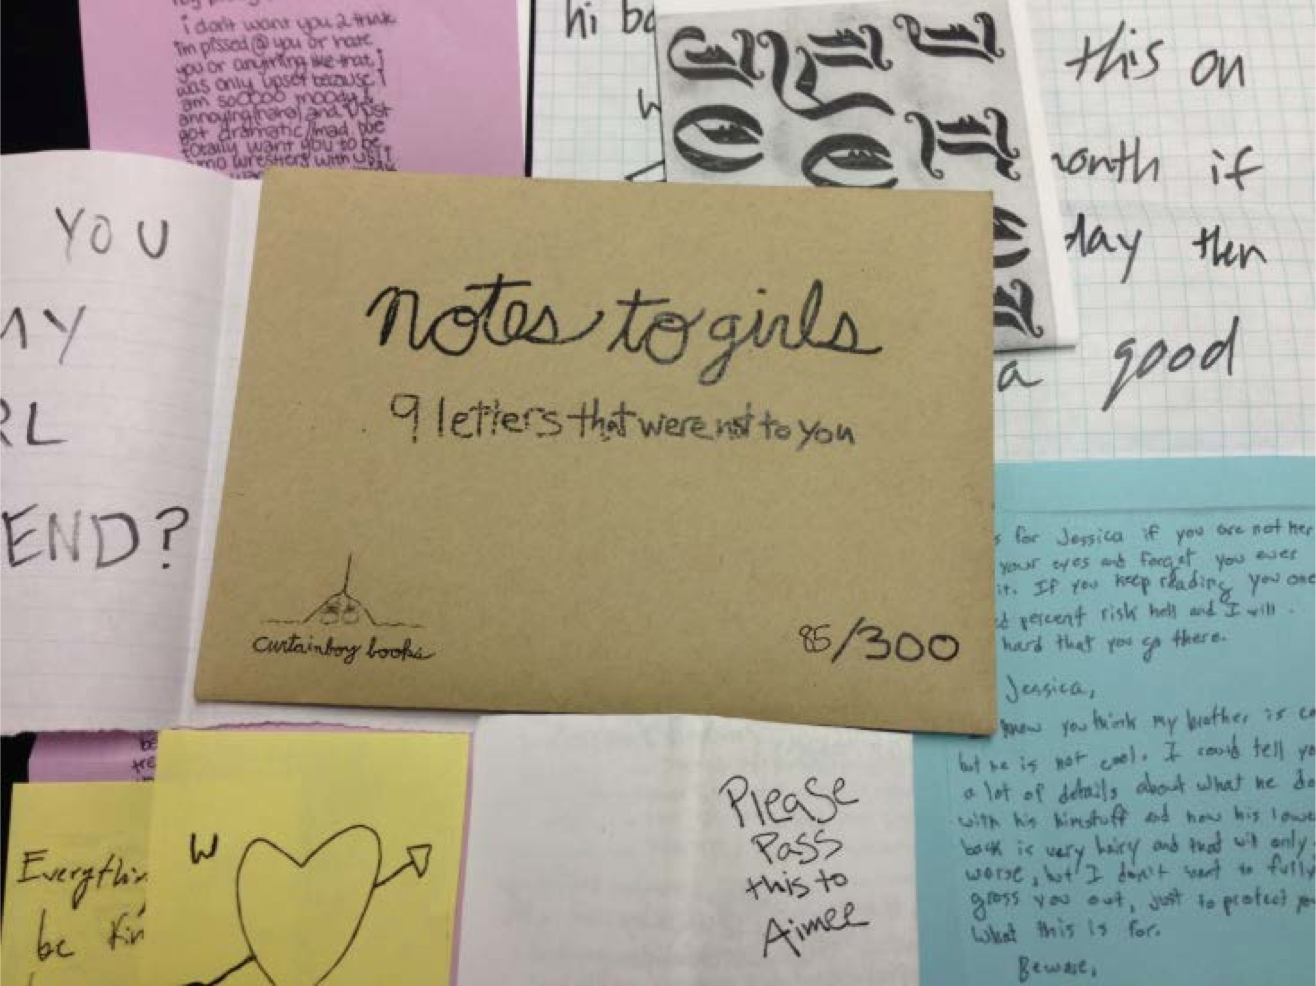 i don't want you 2 think
I'm pissed @ you or hate
you or anything like that, i
was only upset because i
am soOOOO moody &
annoying (haha) and i just
got dramatic/mad. we
totally want you to be
wrestlers with us!!
hi
this on
month if
day then
a good
YOU
MY
RL
END?
notes to girls
9 letters that were not to you
curtainboy books
85/300
s for Jessica if you are not her
your eyes and forget you ever
it. If you keep reading you one
d percent risk hell and I will
hard that you go there.
Jessica,
know you think my brother is co
but he is not cool. I could tell yo
a lot of details about what he do
with his himstuff and how his lowe
back is very hairy and that will only
worse, but I don't want to fully
gross you out, just to protect yo
What this is for.
Beware,
be
tre
Everythin
be kin
W
Please
Pass
this to
Aimee